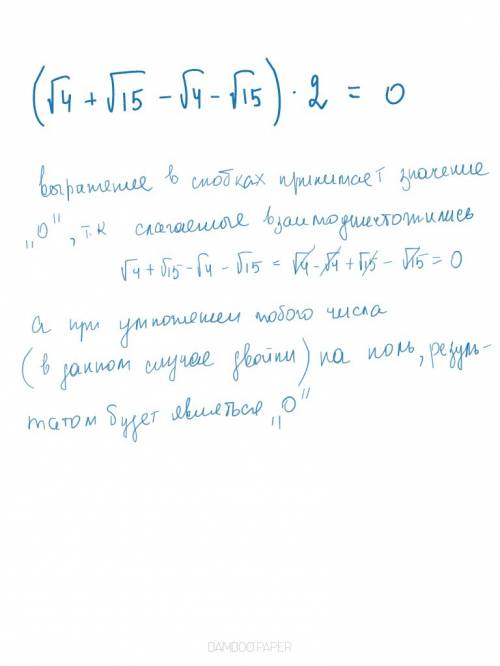 (√4 + √15 - √4 - √15) · 2 = 0
выражение в скобках принимает значение
„0", т.к слагаемые взаимоуничтожились
√4 + √15 - √4 - √15 = √4 - √4 + √15 - √15 = 0
а при умножении любого числа
(в данном случае двойки) на ноль, резуль-
татом будет являться „0"
BAMBOOPAPER